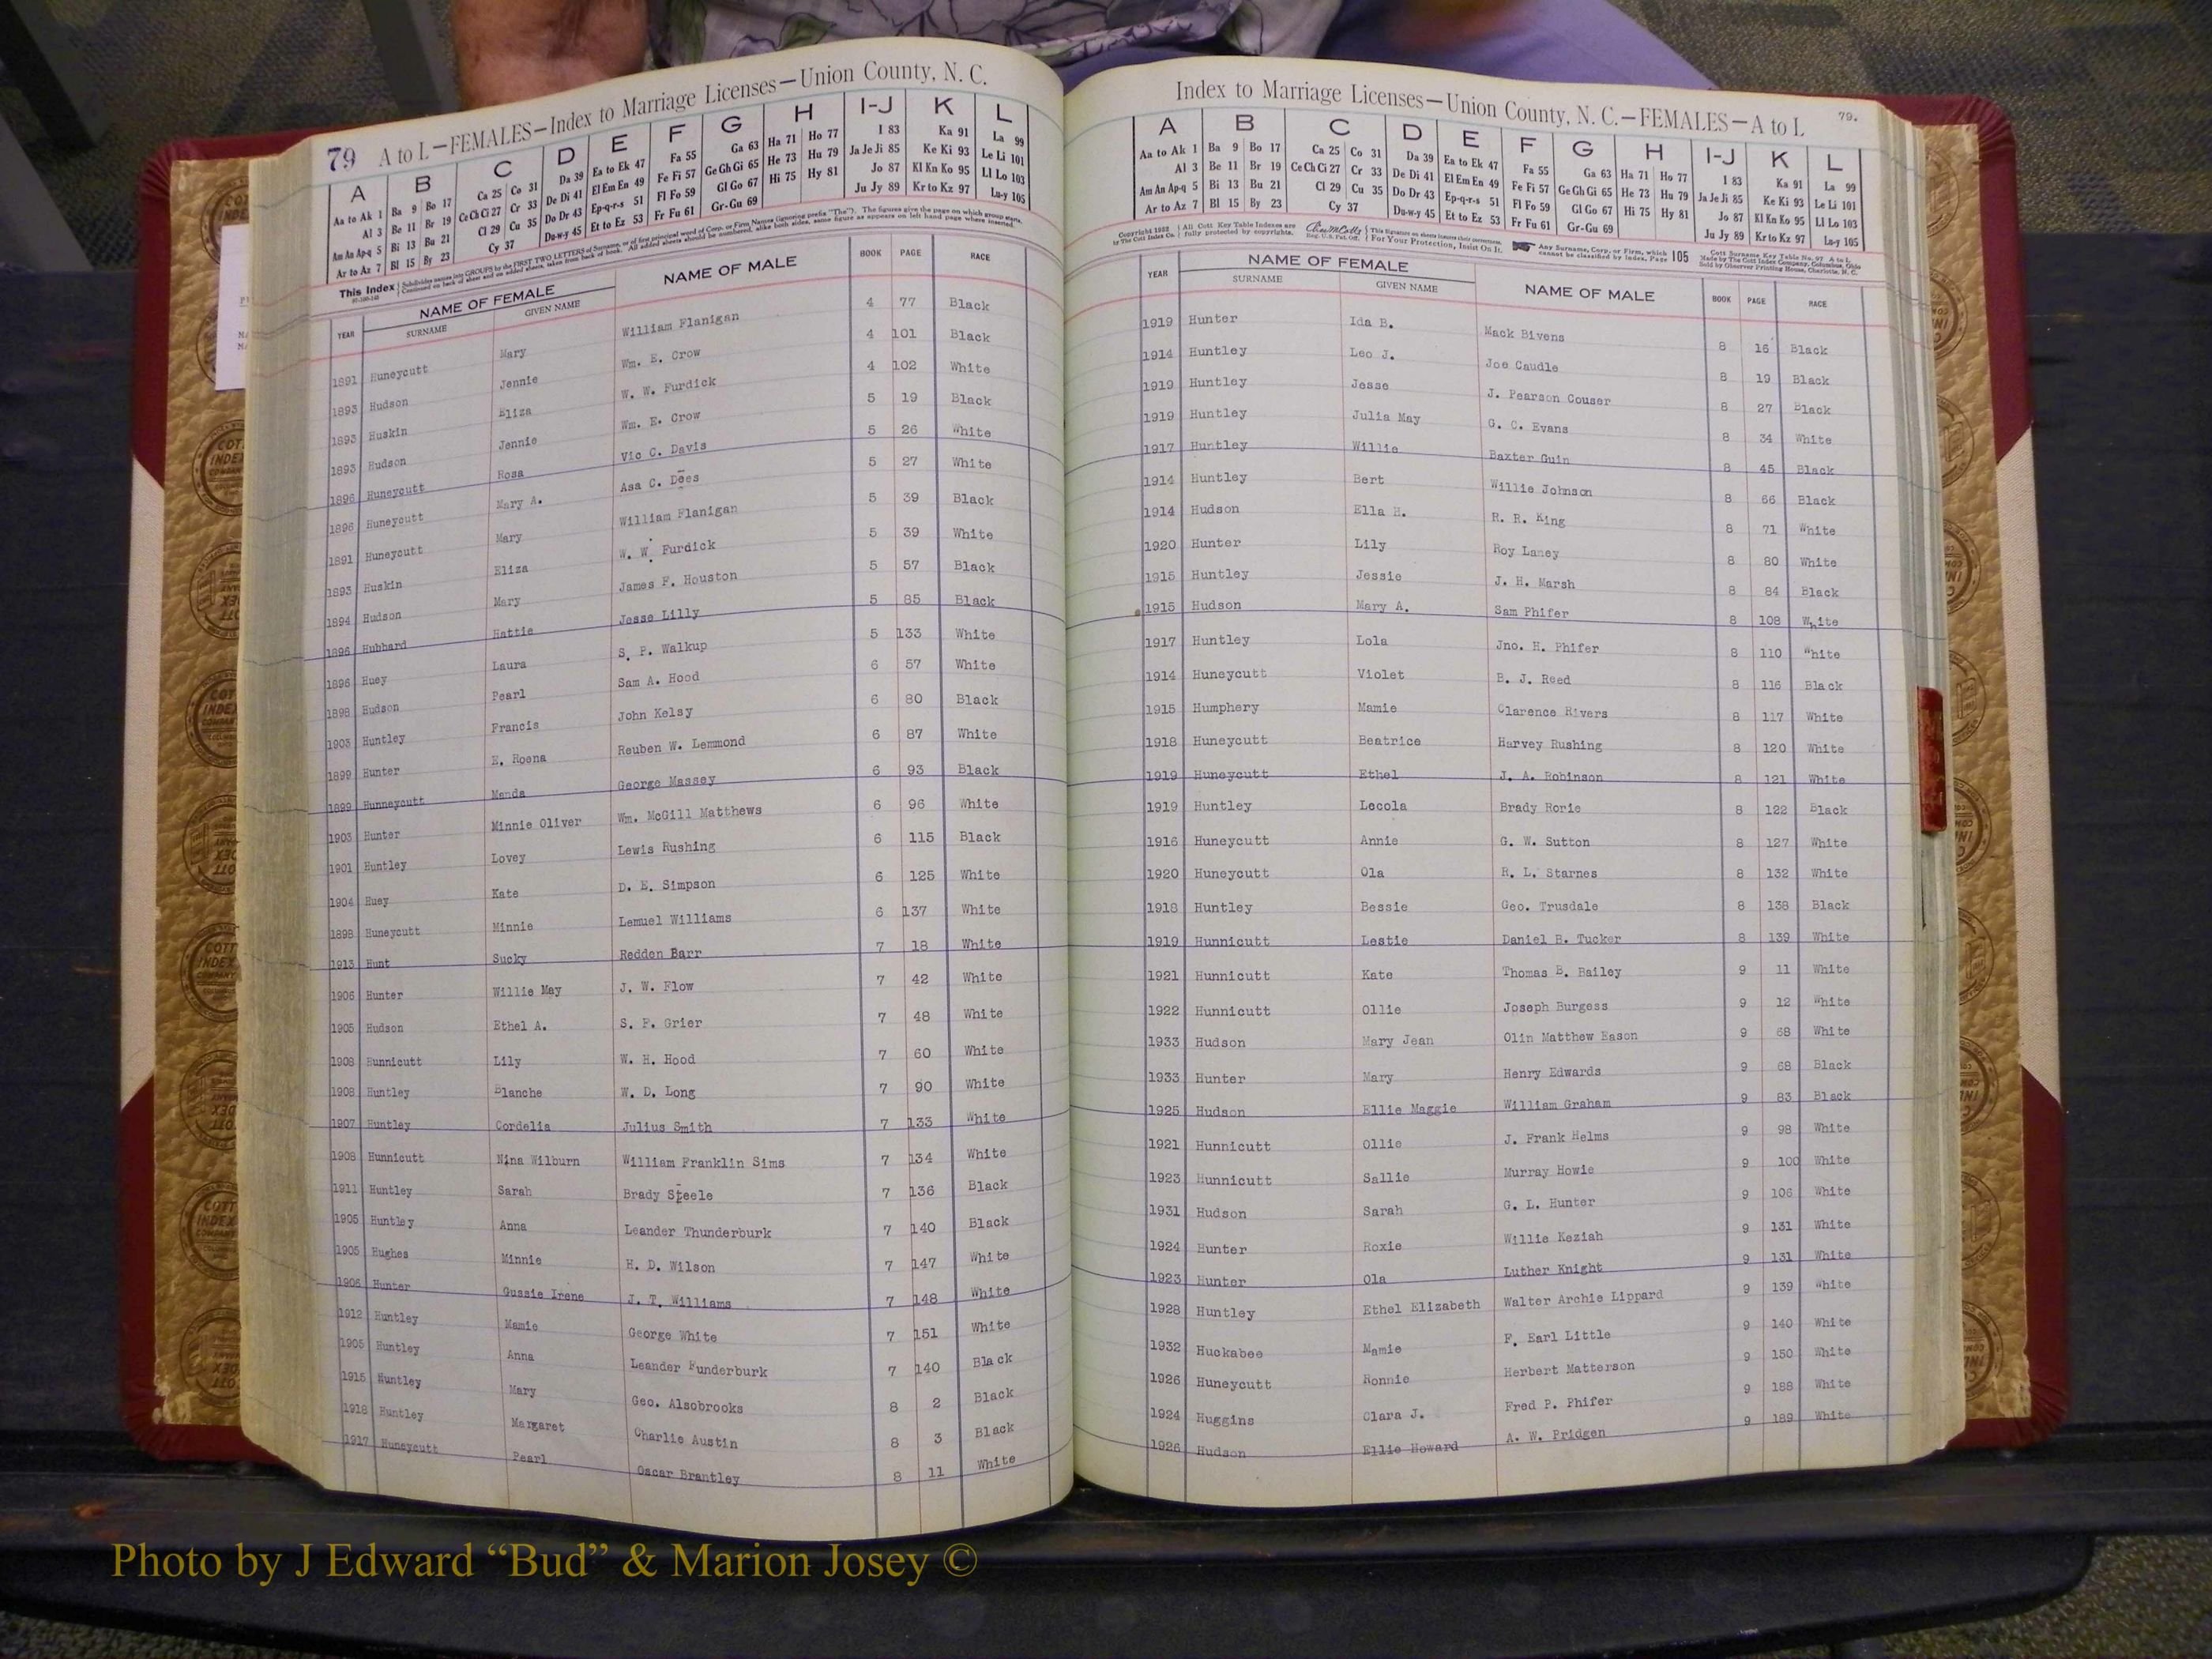 79 A to L—FEMALES—Index to Marriage Licenses—Union County, N. C.
A B C D E F G H I-J K L
Aa to Ak 1 Ba 9 Bo 17 Ca 25 Co 31 Da 39 Ea to Ek 47 Fa 55 Ga 63 Ha 71 Ho 77 I 83 Ka 91 La 99
Al 3 Be 11 Br 19 Ce Ch Ci 27 Cr 33 De Di 41 El Em En 49 Fe Fi 57 Ge Gh Gi 65 He 73 Hu 79 Ja Je Ji 85 Ke Ki 93 Le Li 101
Am An Ap-q 5 Bi 13 Bu 21 Cl 29 Cu 35 Do Dr 43 Ep-q-r-s 51 Fl Fo 59 Gl Go 67 Hi 75 Hy 81 Jo 87 Kl Kn Ko 95 Ll Lo 103
Ar to Az 7 Bl 15 By 23 Cy 37 Du-w-y 45 Et to Ez 53 Fr Fu 61 Gr-Gu 69 Ju Jy 89 Kr to Kz 97 Lu-y 105
This Index Subdivides names into GROUPS by the FIRST TWO LETTERS of Surname, or of first principal word of Corp. or Firm Names (ignoring prefix "The"). The figures give the page on which group starts.
Continued on back of sheet and on added sheets, taken from back of book. All added sheets should be numbered, alike both sides, same figure as appears on left hand page where inserted.
YEAR NAME OF FEMALE NAME OF MALE BOOK PAGE RACE
SURNAME GIVEN NAME
1891 Huneycutt Mary William Flanigan 4 77 Black
1893 Hudson Jennie Wm. E. Crow 4 101 Black
1893 Huskin Eliza W. W. Furdick 4 102 White
1893 Hudson Jennie Wm. E. Crow 5 19 Black
1896 Huneycutt Rosa Vic C. Davis 5 26 White
1896 Huneycutt Mary A. Asa C. Dees 5 27 White
1891 Huneycutt Mary William Flanigan 5 39 Black
1893 Huskin Eliza W. W. Furdick 5 39 White
1894 Hudson Mary James F. Houston 5 57 Black
1896 Hubbard Hattie Jesse Lilly 5 85 Black
1896 Huey Laura S. P. Walkup 5 133 White
1898 Hudson Pearl Sam A. Hood 6 57 White
1903 Huntley Francis John Kelsy 6 80 Black
1899 Hunter E. Roena Reuben W. Lemmond 6 87 White
1899 Hunneycutt Manda George Massey 6 93 Black
1903 Hunter Minnie Oliver Wm. McGill Matthews 6 96 White
1901 Huntley Lovey Lewis Rushing 6 115 Black
1904 Huey Kate D. E. Simpson 6 125 White
1898 Huneycutt Minnie Lemuel Williams 6 137 White
1913 Hunt Sucky Redden Barr 7 18 White
1906 Hunter Willie May J. W. Flow 7 42 White
1905 Hudson Ethel A. S. P. Grier 7 48 White
1908 Hunnicutt Lily W. H. Hood 7 60 White
1908 Huntley Blanche W. D. Long 7 90 White
1907 Huntley Cordelia Julius Smith 7 133 White
1908 Hunnicutt Nina Wilburn William Franklin Sims 7 134 White
1911 Huntley Sarah Brady Steele 7 136 Black
1905 Huntley Anna Leander Thunderburk 7 140 Black
1905 Hughes Minnie H. D. Wilson 7 147 White
1906 Hunter Gussie Irene J. T. Williams 7 148 White
1912 Huntley Mamie George White 7 151 White
1905 Huntley Anna Leander Funderburk 7 140 Black
1915 Huntley Mary Geo. Alsobrooks 8 2 Black
1918 Huntley Margaret Charlie Austin 8 3 Black
1917 Huneycutt Pearl Oscar Brantley 8 11 White
Index to Marriage Licenses—Union County, N. C.—FEMALES—A to L 79.
A B C D E F G H I-J K L
Aa to Ak 1 Ba 9 Bo 17 Ca 25 Co 31 Da 39 Ea to Ek 47 Fa 55 Ga 63 Ha 71 Ho 77 I 83 Ka 91 La 99
Al 3 Be 11 Br 19 Ce Ch Ci 27 Cr 33 De Di 41 El Em En 49 Fe Fi 57 Ge Gh Gi 65 He 73 Hu 79 Ja Je Ji 85 Ke Ki 93 Le Li 101
Am An Ap-q 5 Bi 13 Bu 21 Cl 29 Cu 35 Do Dr 43 Ep-q-r-s 51 Fl Fo 59 Gl Go 67 Hi 75 Hy 81 Jo 87 Kl Kn Ko 95 Ll Lo 103
Ar to Az 7 Bl 15 By 23 Cy 37 Du-w-y 45 Et to Ez 53 Fr Fu 61 Gr-Gu 69 Ju Jy 89 Kr to Kz 97 Lu-y 105
by The Cott Index Co. All Cott Key Table Indexes are fully protected by copyrights. For Your Protection, Insist On It. Any Surname, Corp. or Firm, which cannot be classified by Index, Page 105
Made by The Cott Index Company, Columbus, Ohio
Sold by Observer Printing House, Charlotte, N. C.
YEAR NAME OF FEMALE NAME OF MALE BOOK PAGE RACE
SURNAME GIVEN NAME
1919 Hunter Ida B. Mack Bivens 8 16 Black
1914 Huntley Leo J. Joe Caudle 8 19 Black
1919 Huntley Jesse J. Pearson Couser 8 27 Black
1919 Huntley Julia May G. C. Evans 8 34 White
1917 Huntley Willie Baxter Guin 8 45 Black
1914 Huntley Bert Willie Johnson 8 66 Black
1914 Hudson Ella H. R. R. King 8 71 White
1920 Hunter Lily Roy Laney 8 80 White
1915 Huntley Jessie J. H. Marsh 8 84 Black
1915 Hudson Mary A. Sam Phifer 8 108 White
1917 Huntley Lola Jno. H. Phifer 8 110 White
1914 Huneycutt Violet B. J. Reed 8 116 Black
1915 Humphery Mamie Clarence Rivers 8 117 White
1918 Huneycutt Beatrice Harvey Rushing 8 120 White
1919 Huneycutt Ethel J. A. Robinson 8 121 White
1919 Huntley Lecola Brady Rorie 8 122 Black
1916 Huneycutt Annie G. W. Sutton 8 127 White
1920 Huneycutt Ola R. L. Starnes 8 132 White
1918 Huntley Bessie Geo. Trusdale 8 138 Black
1919 Hunnicutt Lestie Daniel B. Tucker 8 139 White
1921 Hunnicutt Kate Thomas B. Bailey 9 11 White
1922 Hunnicutt Ollie Joseph Burgess 9 12 White
1933 Hudson Mary Jean Olin Matthew Eason 9 68 White
1933 Hunter Mary Henry Edwards 9 68 Black
1925 Hudson Ellie Maggie William Graham 9 83 Black
1921 Hunnicutt Ollie J. Frank Helms 9 98 White
1923 Hunnicutt Sallie Murray Howie 9 100 White
1931 Hudson Sarah G. L. Hunter 9 106 White
1924 Hunter Roxie Willie Keziah 9 131 White
1923 Hunter Ola Luther Knight 9 131 White
1928 Huntley Ethel Elizabeth Walter Archie Lippard 9 139 White
1932 Huckabee Mamie F. Earl Little 9 140 White
1926 Huneycutt Ronnie Herbert Matterson 9 150 White
1924 Huggins Clara J. Fred P. Phifer 9 188 White
1926 Hudson Ellie Howard A. W. Pridgen 9 189 White
Photo by J Edward “Bud” & Marion Josey ©